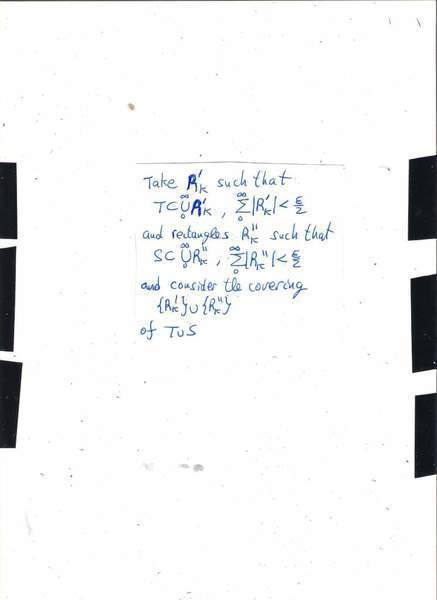 Take R'ₖ such that
T⊂⋃₀^∞ R'ₖ , ∑₀^∞|R'ₖ|< ε/2
and rectangles R''ₖ such that
S⊂⋃₀^∞ R''ₖ , ∑₀^∞|R''ₖ|< ε/2
and consider the covering
{R'ₖ}∪{R''ₖ}
of T∪S